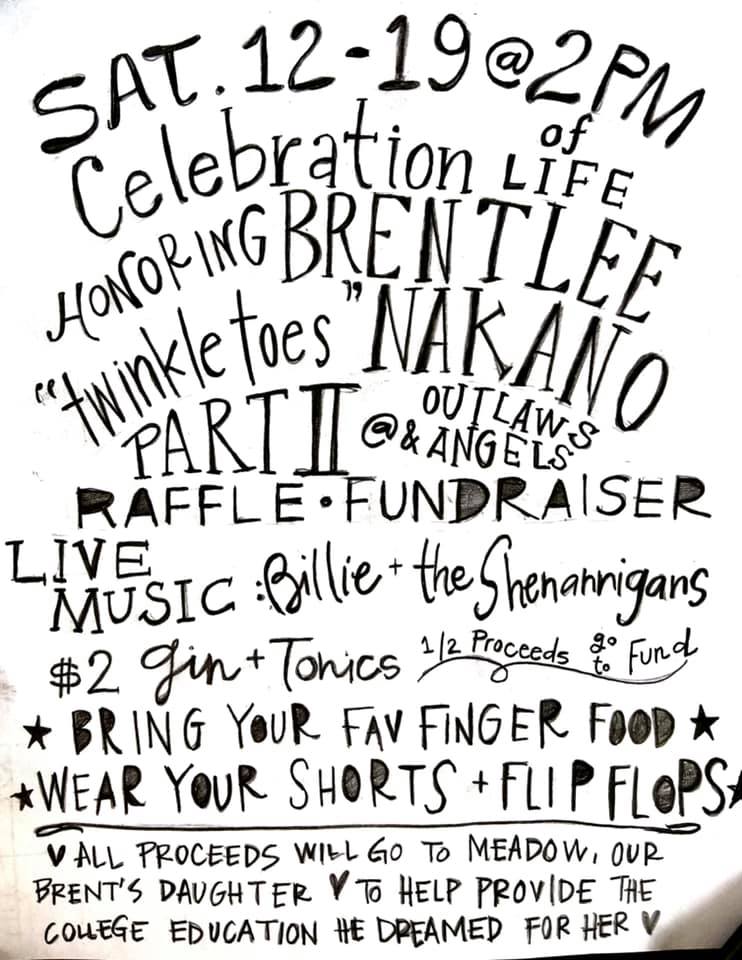 SAT. 12-19 @ 2PM
Celebration of LIFE
HONORING BRENT LEE
"twinkle toes" NAKANO
PART II @ OUTLAWS & ANGELS
RAFFLE • FUNDRAISER
LIVE MUSIC : Billie + the Shenannigans
$2 Gin + Tonics 1/2 Proceeds go to Fund
★ BRING YOUR FAV FINGER FOOD ★
★ WEAR YOUR SHORTS + FLIP FLOPS ★
♥ ALL PROCEEDS WILL GO TO MEADOW, OUR
BRENT'S DAUGHTER ♥ TO HELP PROVIDE THE
COLLEGE EDUCATION HE DREAMED FOR HER ♥